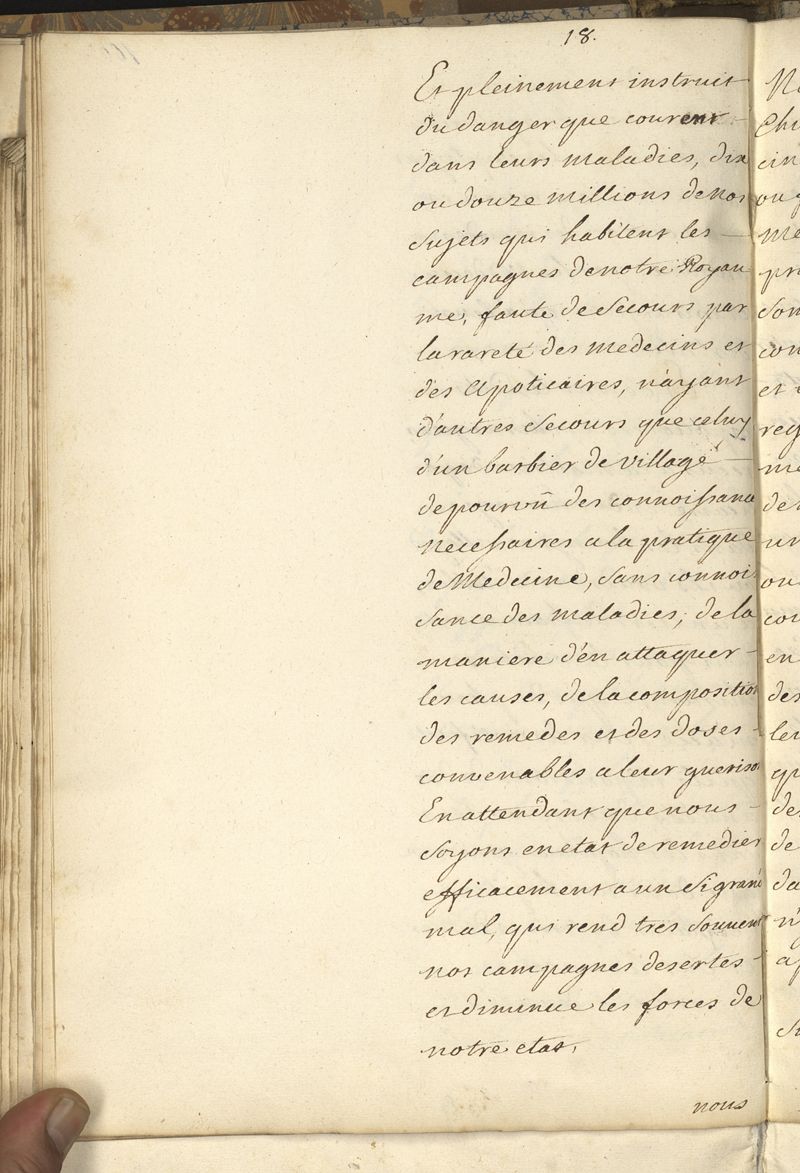 18.
Et pleinement instruit
du danger que courent
dans leurs maladies, dix
ou douze millions de nos
Sujets qui habitent les
campagnes de notre Royau
me, faute de Secours par
la rareté des medecins et
des Apoticaires, n'ayant
d'autres Secours que celuy
d'un barbier de village
depourvû des connoissance
necessaires a la pratique
de Medecine, Sans connoi
sance des maladies, de la
maniere d'en attaquer
les causes, de la composition
des remedes et des doses
convenables a leur guerison
En attendant que nous
Soyons en etat de remedier
efficacement a un Si grand
mal, qui rend tres Souvent
nos campagnes desertes
et diminue les forces de
notre etat,
nous